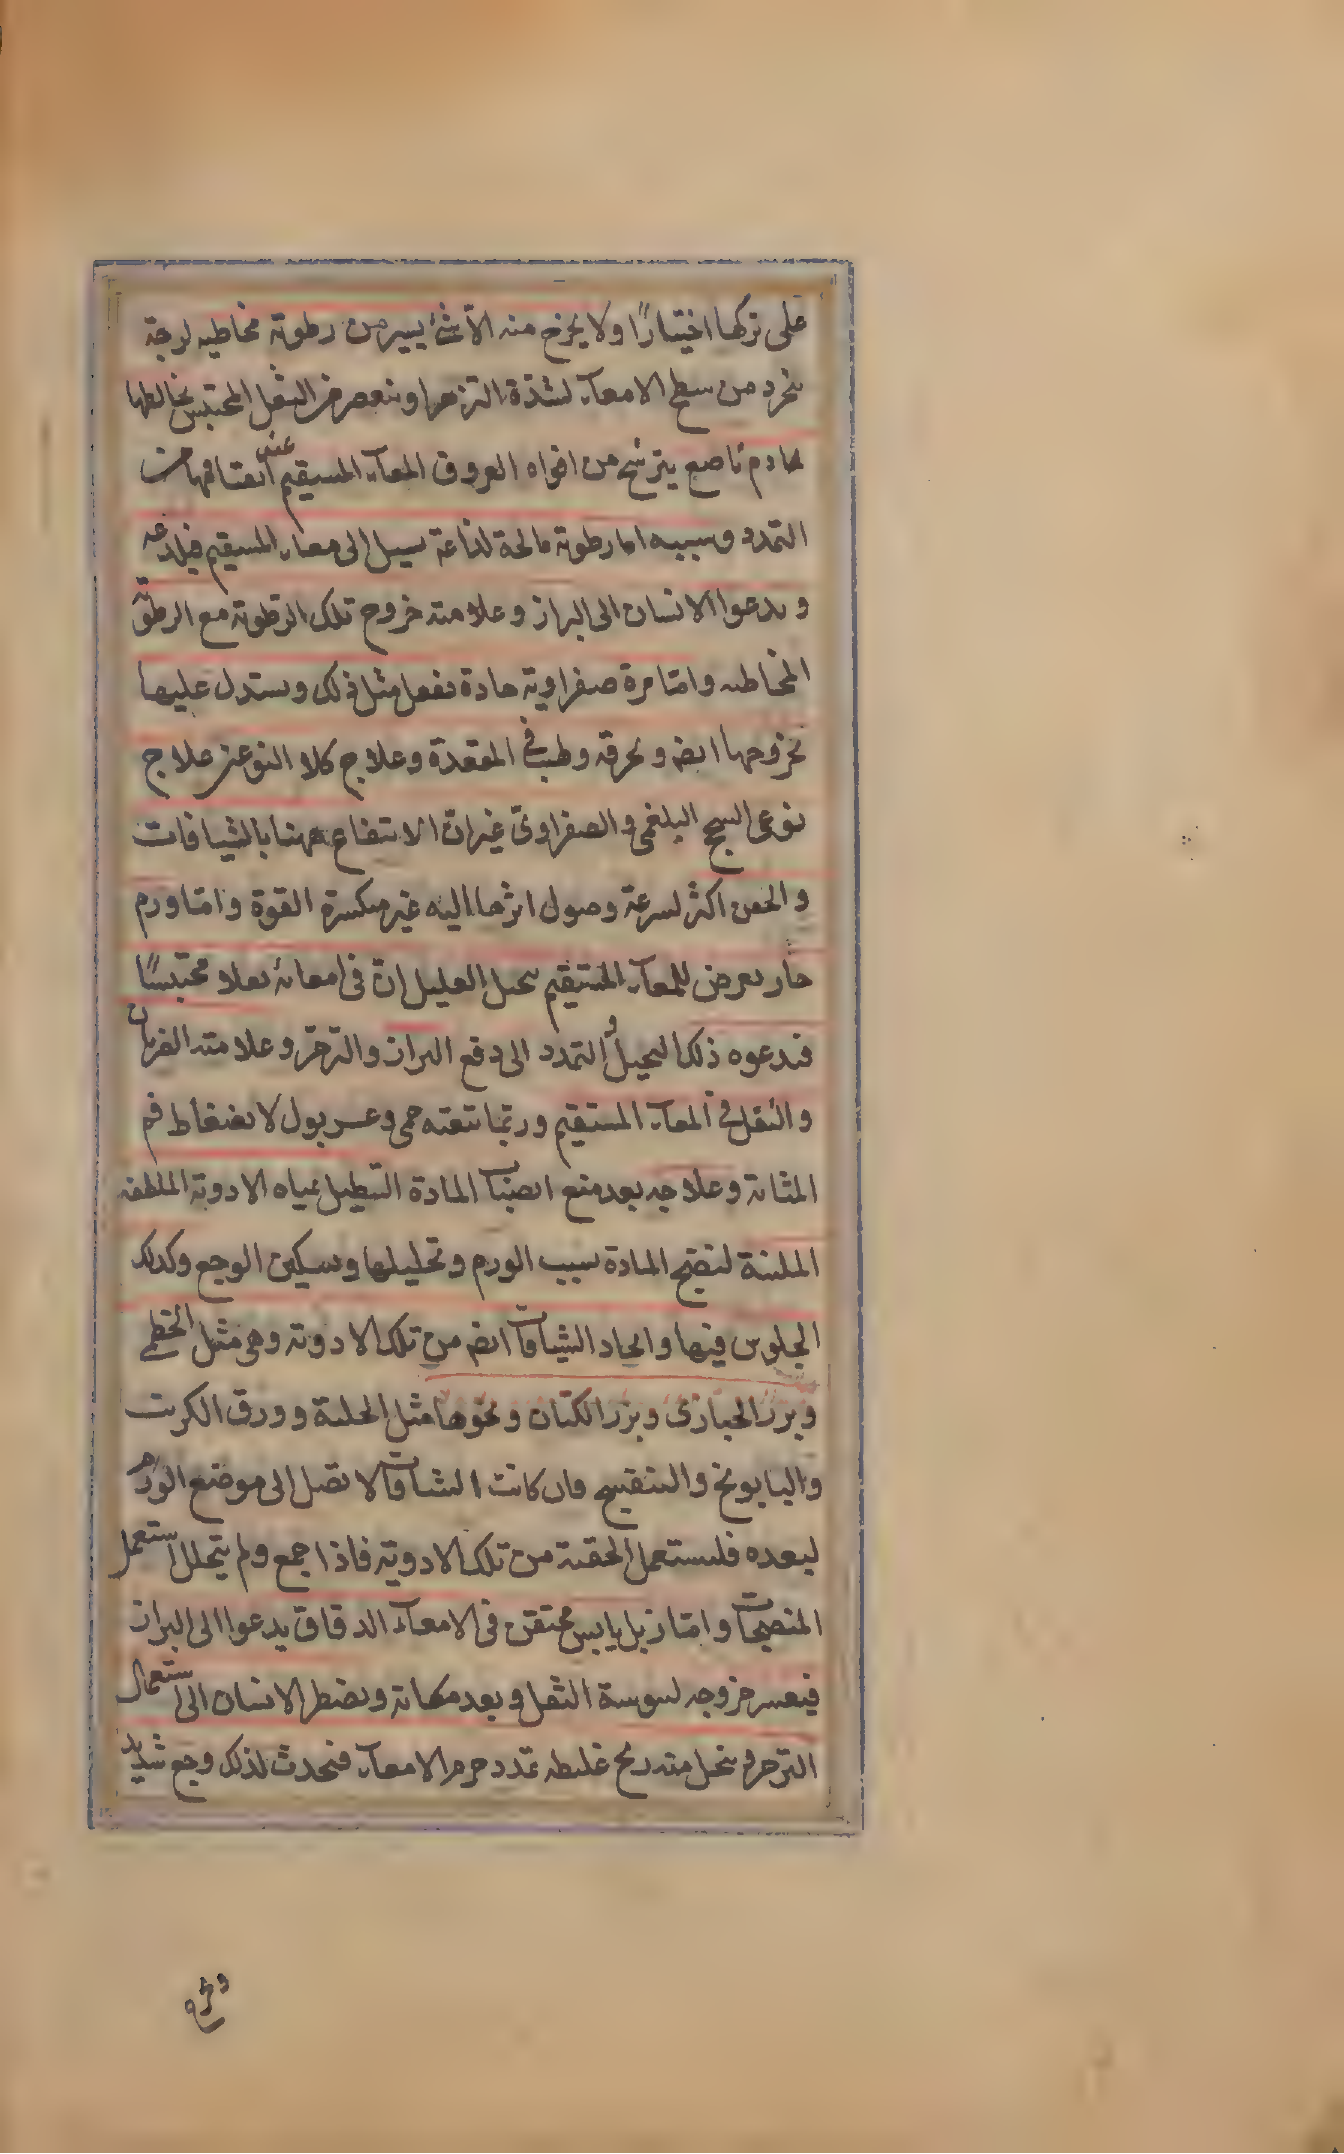 على تركها اختيارًا ولا يخرج منه الا شئ يسير من رطوبة مخاطيه لزجة
تنجرد من سطح الامعاء لشدة التزحر او تنعصر من الثفل المحتبس يخالطها
دم ناصع يترشح من افواه العروق المعاء المسيقيم عند انفتاقها من
التمدد وسببه اما رطوبة مالحة لذاعة تسيل الى معاء المسيقيم فيلذعه
ويدعوا الانسان الى البراز وعلامته خروج تلك الرطوبة مع الرطوبة
المخاطيه واما مرة صفراوية حادة تفعل مثل ذلك ويستدل عليها
بخروجها ايضا وبحرقه ولهيب في المقعدة وعلاج كلا النوعين علاج
نوعى السحج البلغمى والصفراوى غير ان الانتفاع ههنا بالشيافات
والحقن اكثر لسرعة وصول اثرها اليه غير منكسرة القوة واما ورم
حار يعرض للمعاء المستقيم يخيل العليل ان فى امعائه ثفلا محتبسًا
فيدعوه ذلك التخيل والتمدد الى دفع البراز والتزحر وعلامته الضربان
والثقل في المعاء المستقيم وربما تبعته حمى وعسر بول لانضغاط فم
المثانة وعلاجه بعد منع انصباب المادة التنطيل بمياه الادوية الملطفه
الملينة لتنضج المادة سبب الورم وتحليلها وتسكين الوجع وكذلك
الجلوس فيها وايجاد الشيافات ايضا من تلك الادوية وهى مثل الخطمي
وبزر الخبازى وبزر الكتان ونحوها مثل الحلبة وورق الكرنب
والبابونج والبنفسج فان كانت الشيافات لا تصل الى موضع الورم
لبعده فليستعمل الحقنة من تلك الادوية فاذا جمع ولم يتحلل استعمل
المنضجات واما زبل يابس محتقن فى الامعاء الدقاق يدعوا الى البراز
فيعسر خروجه ليبوسة الثفل وبعد مكانه ويضطر الانسان الى استعمال
التزحر وينحل منه ريح غليظه تمدد جرم الامعاء فيحدث لذلك وجع شديد